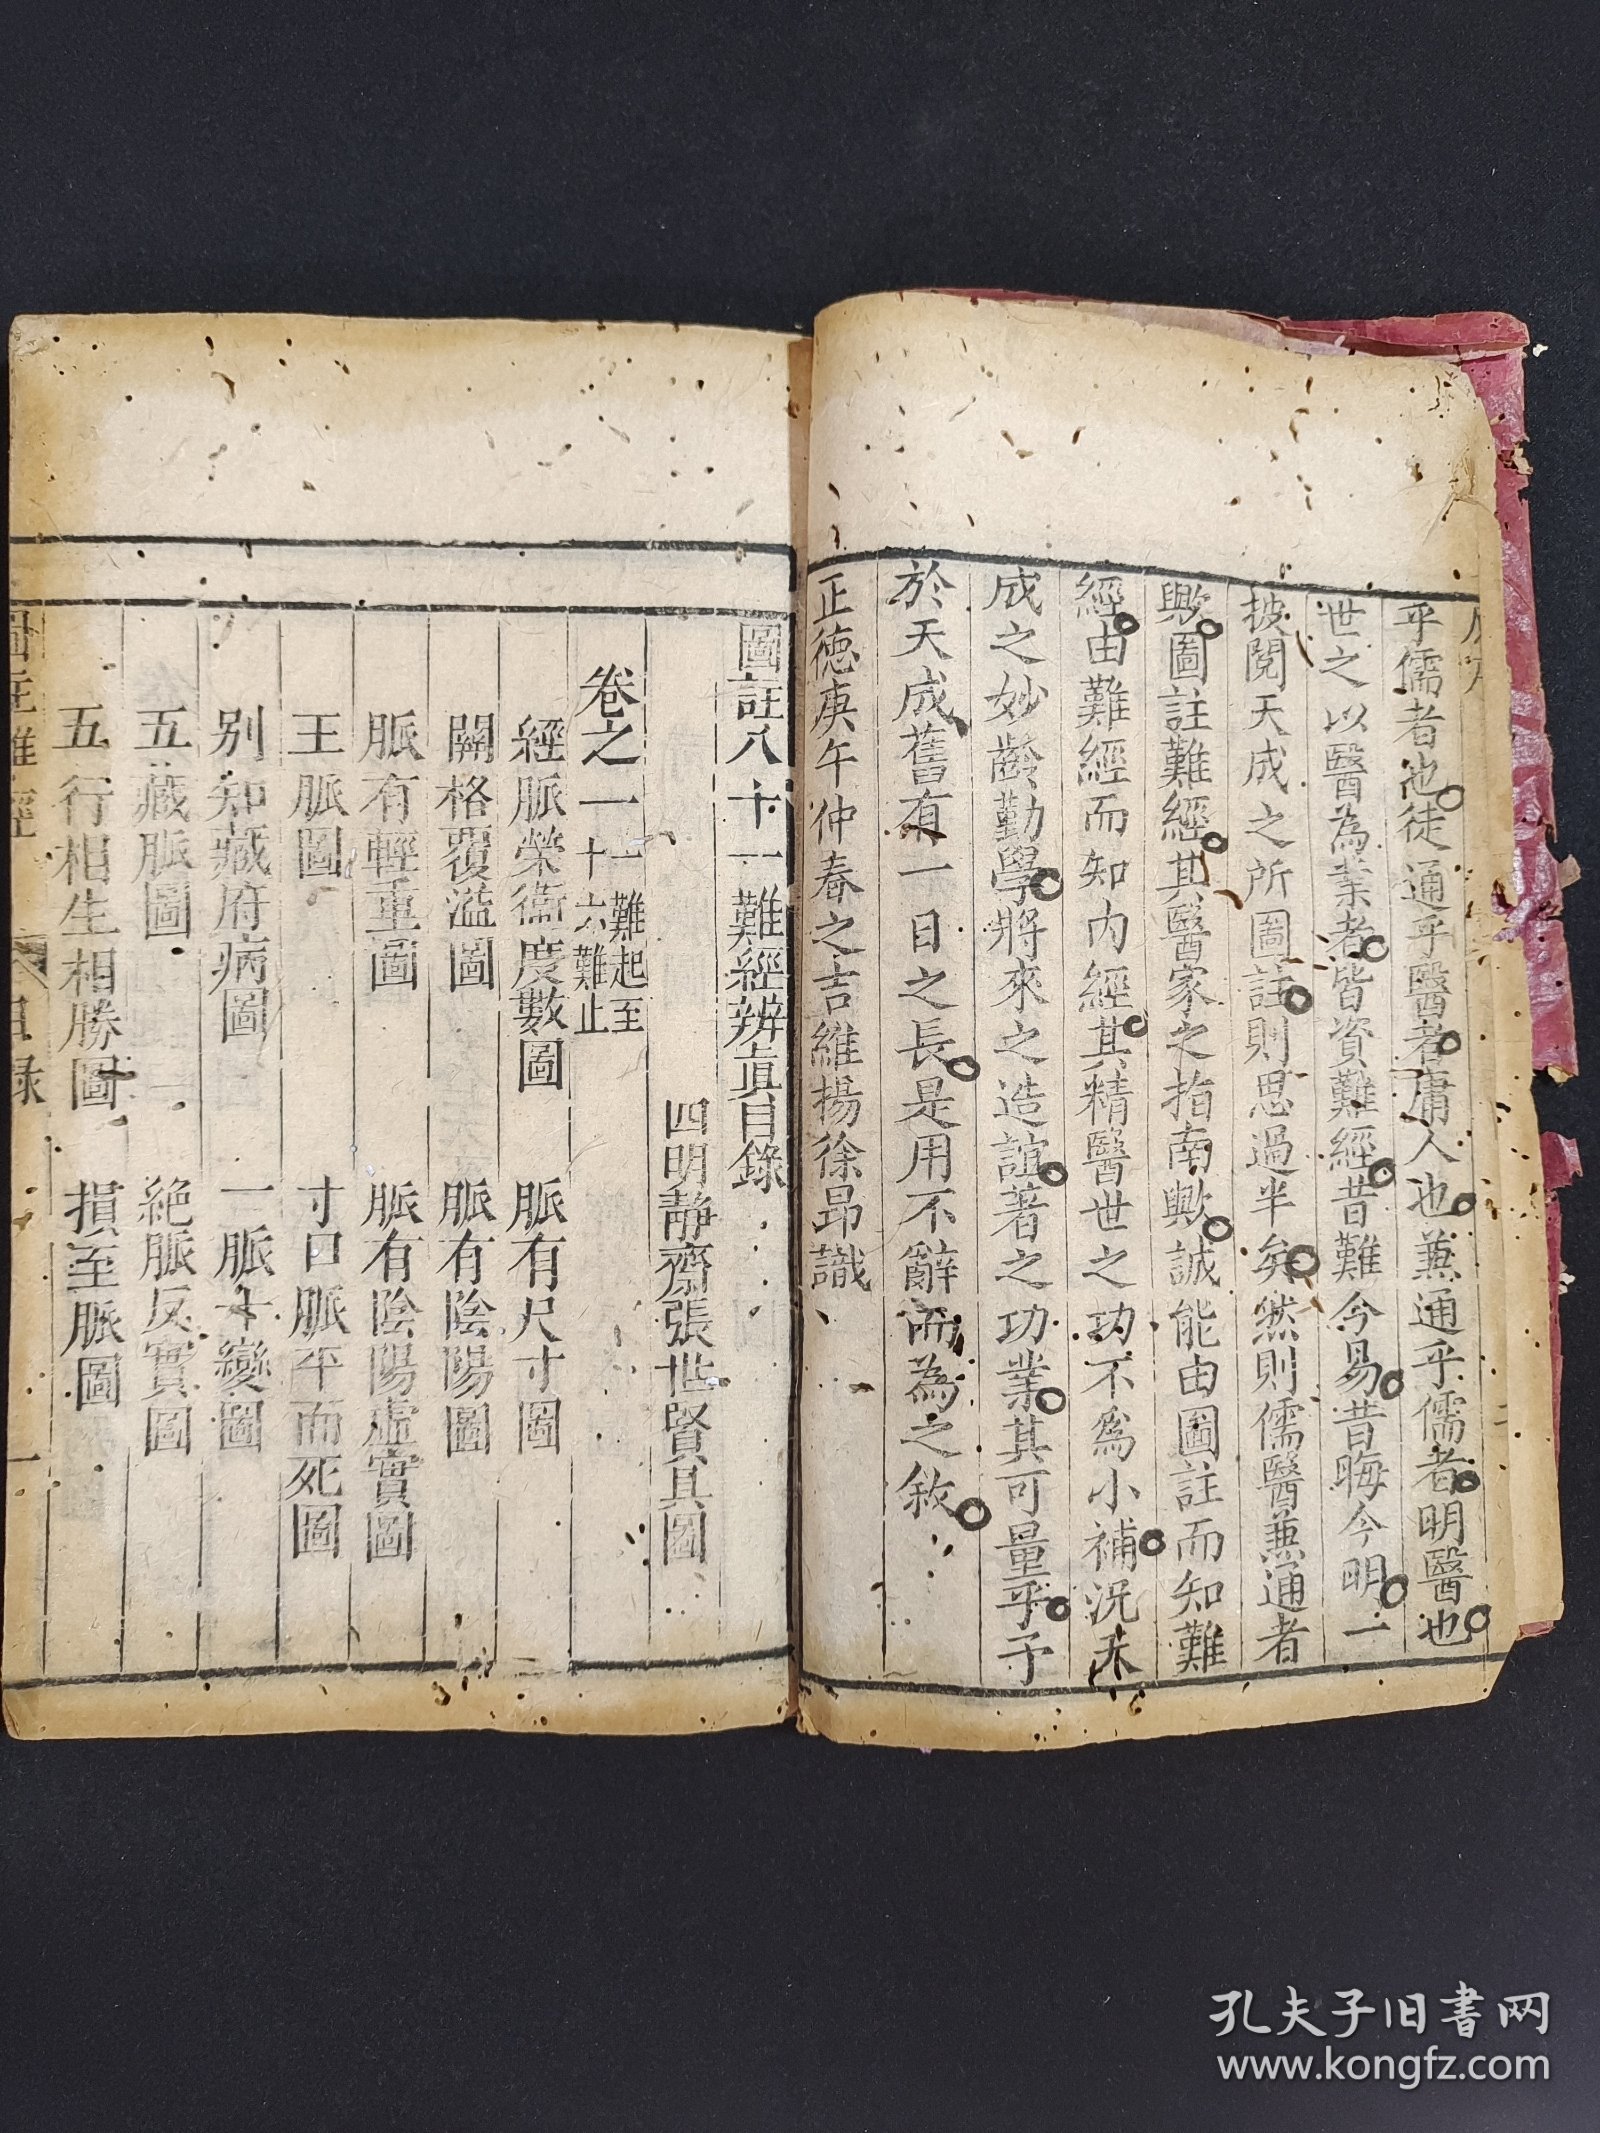 乎儒者也徒通乎醫者庸人也兼通乎儒者明醫也
世之以醫為業者皆資難經昔難今易昔晦今明一
披閱天成之所圖註則思過半矣然則儒醫兼通者
歟圖註難經其醫家之指南歟誠能由圖註而知難
經由難經而知內經其精醫世之功不為小補況天
成之妙齡勤學將來之造詣著之功業其可量乎予
於天成舊有一日之長是用不辭而為之敘
正德庚午仲春之吉維揚徐昂識
圖註八十一難經辨真目錄
四明靜齋張世賢具圖
卷之一 一難起至十六難止
經脈榮衛度數圖 脈有尺寸圖
關格覆溢圖 脈有陰陽圖
脈有輕重圖 脈有陰陽虛實圖
王脈圖 寸口脈平而死圖
別知藏府病圖 一脈十變圖
五藏脈圖 絕脈反實圖
五行相生相勝圖 損至脈圖
圖註難經 目錄 一
孔夫子旧书网
www.kongfz.com